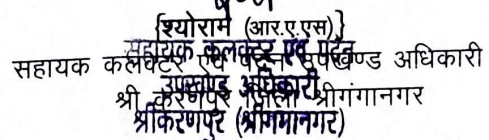 {श्योराम (आर.ए.एस)}
सहायक कलक्टर एवं पदेन उपखण्ड अधिकारी
सहायक कलक्टर एवं पदेन
उपखण्ड अधिकारी
श्री करणपुर जिला श्रीगंगानगर
श्रीकरणपुर (श्रीगंगानगर)